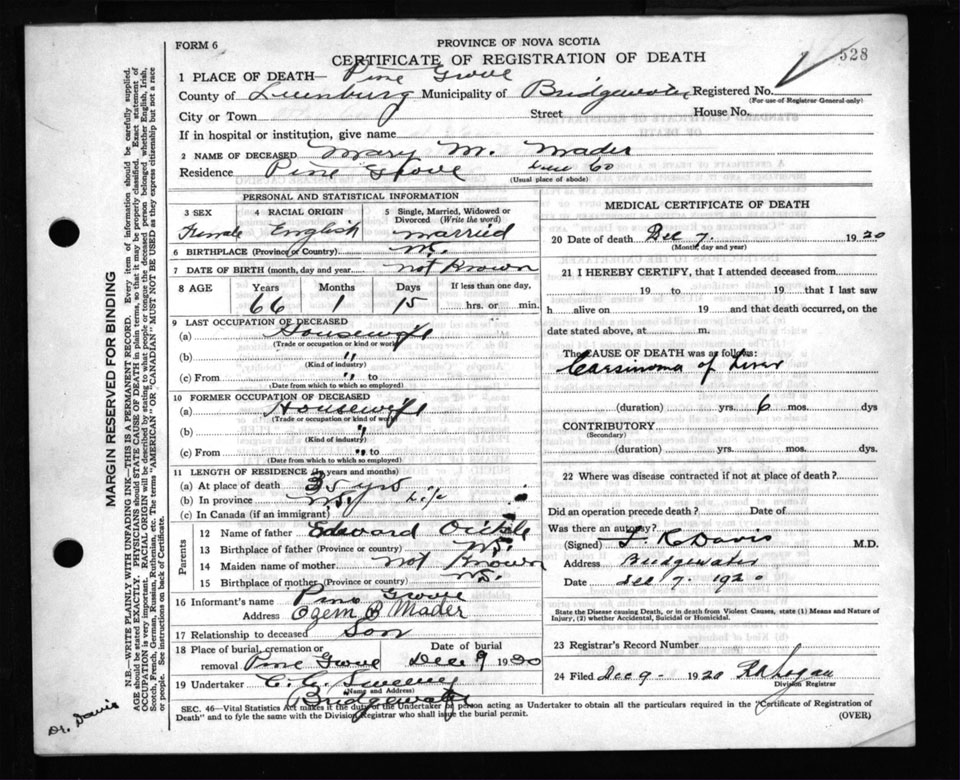 FORM 6
PROVINCE OF NOVA SCOTIA
CERTIFICATE OF REGISTRATION OF DEATH
528
1 PLACE OF DEATH— Pine Grove
County of Lunenburg Municipality of Bridgewater Registered No.
(For use of Registrar General only)
City or Town Street House No.
If in hospital or institution, give name
2 NAME OF DECEASED Mary M. Mader
Residence Pine Grove Lun Co
(Usual place of abode)
PERSONAL AND STATISTICAL INFORMATION
3 SEX 4 RACIAL ORIGIN 5 Single, Married, Widowed or Divorced (Write the word)
Female English married
6 BIRTHPLACE (Province or Country) N.S.
7 DATE OF BIRTH (month, day and year) not Known
8 AGE Years Months Days If less than one day,
66 1 15 hrs. or min.
9 LAST OCCUPATION OF DECEASED
(a) Housewife
(Trade or occupation or kind or work)
(b) "
(Kind of industry)
(c) From " to
(Date from which to which so employed)
10 FORMER OCCUPATION OF DECEASED
(a) Housewife
(Trade or occupation or kind of work)
(b) "
(Kind of industry)
(c) From " to
(Date from which to which so employed)
11 LENGTH OF RESIDENCE (In years and months)
(a) At place of death 35 yrs
(b) In province N.S. Life
(c) In Canada (if an immigrant)
Parents
12 Name of father Edward Oickle
13 Birthplace of father (Province or country) N.S.
14 Maiden name of mother not Known
15 Birthplace of mother (Province or country) N.S.
16 Informant's name Pine Grove
Address Ozem B Mader
17 Relationship to deceased Son
18 Place of burial, cremation or removal Pine Grove Date of burial Dec 9 1920
19 Undertaker C. G. Sweeny
(Name and Address)
Bridgewater
MEDICAL CERTIFICATE OF DEATH
20 Date of death Dec 7 1920
(Month, day and year)
21 I HEREBY CERTIFY, that I attended deceased from
19 to 19 that I last saw
h alive on 19 and that death occurred, on the
date stated above, at m.
The CAUSE OF DEATH was as follows:
Carsinoma of Liver
(duration) yrs. 6 mos. dys
CONTRIBUTORY
(Secondary)
(duration) yrs. mos. dys.
22 Where was disease contracted if not at place of death?
Did an operation precede death? Date of
Was there an autopsy?
(Signed) Davis M.D.
Address Bridgewater
Date Dec 7. 1920
State the Disease causing Death, or in death from Violent Causes, state (1) Means and Nature of
Injury, (2) whether Accidental, Suicidal or Homicidal.
23 Registrar's Record Number
24 Filed Dec 9- 1920
Division Registrar
SEC. 46—Vital Statistics Act makes it the duty of the Undertaker or person acting as Undertaker to obtain all the particulars required in the "Certificate of Registration of
Death" and to fyle the same with the Division Registrar who shall issue the burial permit.
(OVER)
MARGIN RESERVED FOR BINDING
N.B.—WRITE PLAINLY WITH UNFADING INK—THIS IS A PERMANENT RECORD. Every item of information should be carefully supplied.
AGE should be stated EXACTLY. PHYSICIANS should STATE CAUSE OF DEATH in plain terms, so that it may be properly classified. Exact statement of
OCCUPATION is very important. RACIAL ORIGIN will be described by stating to what people or tongue the deceased person belonged whether English, Irish,
Scotch, French, German, Russian, Ruthenian, etc. The terms "AMERICAN" or "CANADIAN" MUST NOT BE USED as they express citizenship but not a race
or people. See instructions on back of Certificate.
Dr. Davis